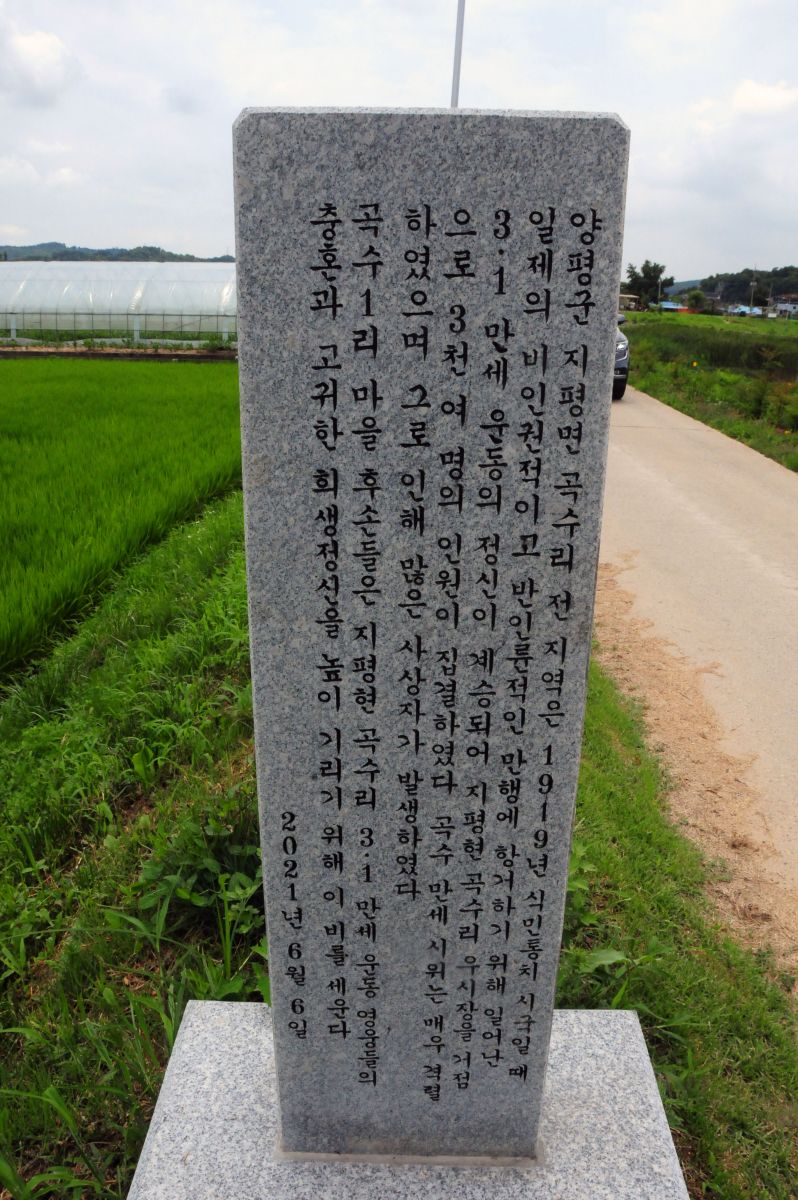 양평군 지평면 곡수리 전 지역은 1919년 식민통치 시국일 때
일제의 비인권적이고 반인륜적인 만행에 항거하기 위해 일어난
3·1 만세 운동의 정신이 계승되어 지평현 곡수리 우시장을 거점
으로 3천여 명의 인원이 집결하였다 곡수 만세 시위는 매우 격렬
하였으며 그로 인해 많은 사상자가 발생하였다
곡수1리 마을 후손들은 지평현 곡수리 3·1 만세 운동 영웅들의
충혼과 고귀한 희생정신을 높이 기리기 위해 이 비를 세운다
2021년 6월 6일